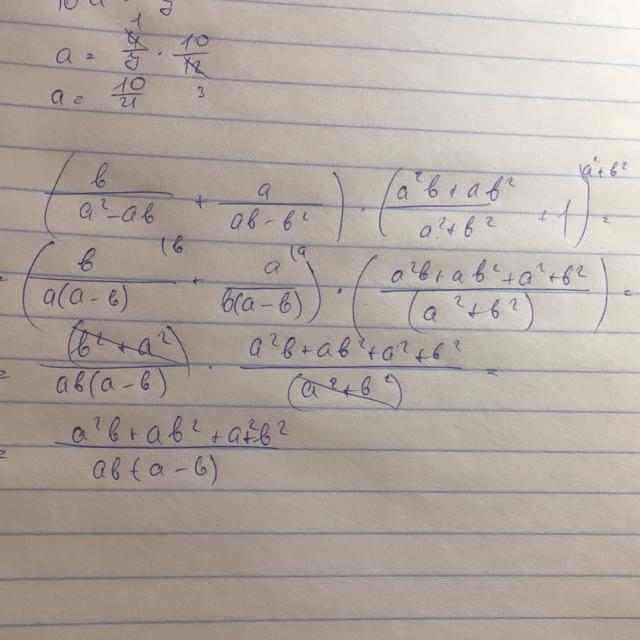 a = 4/5 · 10/12
a = 10/21
(b/(a²-ab) + a/(ab-b²)) · ((a²b+ab²)/(a²+b²) + 1) =
= (b/(a(a-b)) + a/(b(a-b))) · ((a²b+ab²+a²+b²)/(a²+b²)) =
= (b²+a²)/(ab(a-b)) · (a²b+ab²+a²+b²)/(a²+b²) =
= (a²b+ab²+a²+b²)/(ab(a-b))